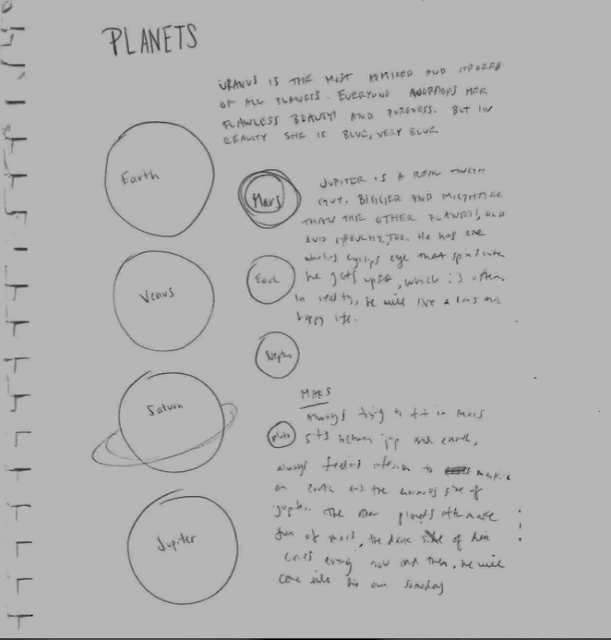 PLANETS
URANUS IS THE MOST ADMIRED AND
OF ALL PLANETS. EVERYONE HER
FLAWLESS BEAUTY AND PURENESS. BUT IN
REALITY SHE IS BLUE, VERY BLUE
Earth
Mars
JUPITER IS A REAL TOUGH
GUY. BIGGER AND MIGHTIER
THAN THE OTHER PLANETS, OLD
AND GROUCHY, TOO. He has one
eye that spins when
he gets upset, which is often
In reality, he will live a long and
happy life.
Venus
Earth
Neptu
Saturn
MARS
Always trying to fit in Mars
pluto
sits between jup and earth,
always feeling inferior to
on earth and the size of
jupiter. The other planets often make
fun of mars, the dark side of him
cries every now and then. he will
come into his own someday
Jupiter